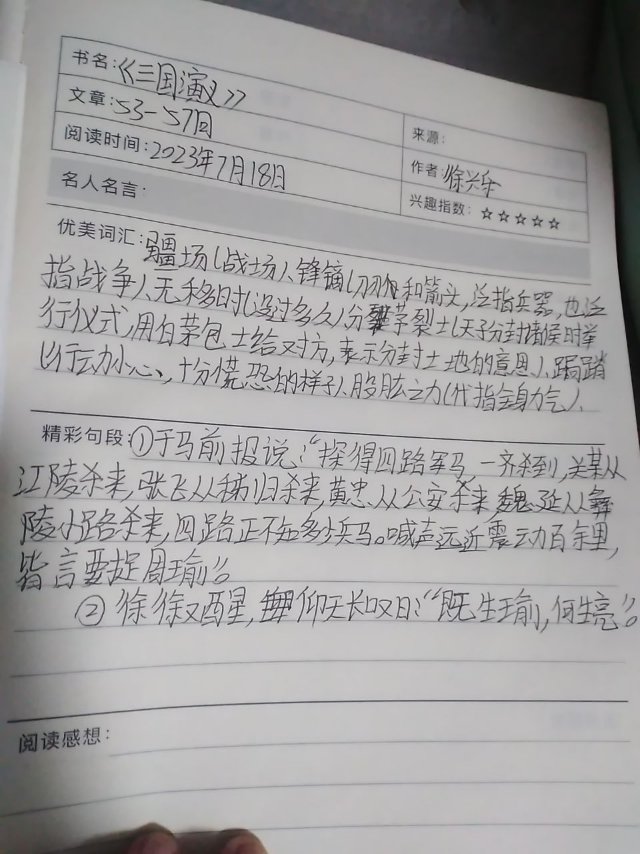 书名:《三国演义》
文章:53-57回
来源:
阅读时间:2023年7月18日
作者:徐兴乐
名人名言:
兴趣指数:☆☆☆☆☆
优美词汇:疆场(战场)、锋镝(刀刃和箭头,泛指兵器,也泛
指战争)、无移时(没过多久)分茅裂土(天子分封诸侯时举
行仪式,用白茅包土给对方,表示分封土地的意思)、跼蹐
(行动小心,十分慌恐的样子)、股肱之力(代指全身力气)、
精彩句段:①于马前报说:“探得四路军马,一齐杀到,关某从
江陵杀来,张飞从秭归杀来,黄忠从公安杀来魏延从彝
陵小路杀来,四路正不知多少兵马。喊声远近震动百余里,
皆言要捉周瑜”。
②徐徐又醒,仰天长叹曰:“既生瑜,何生亮”。
阅读感想: